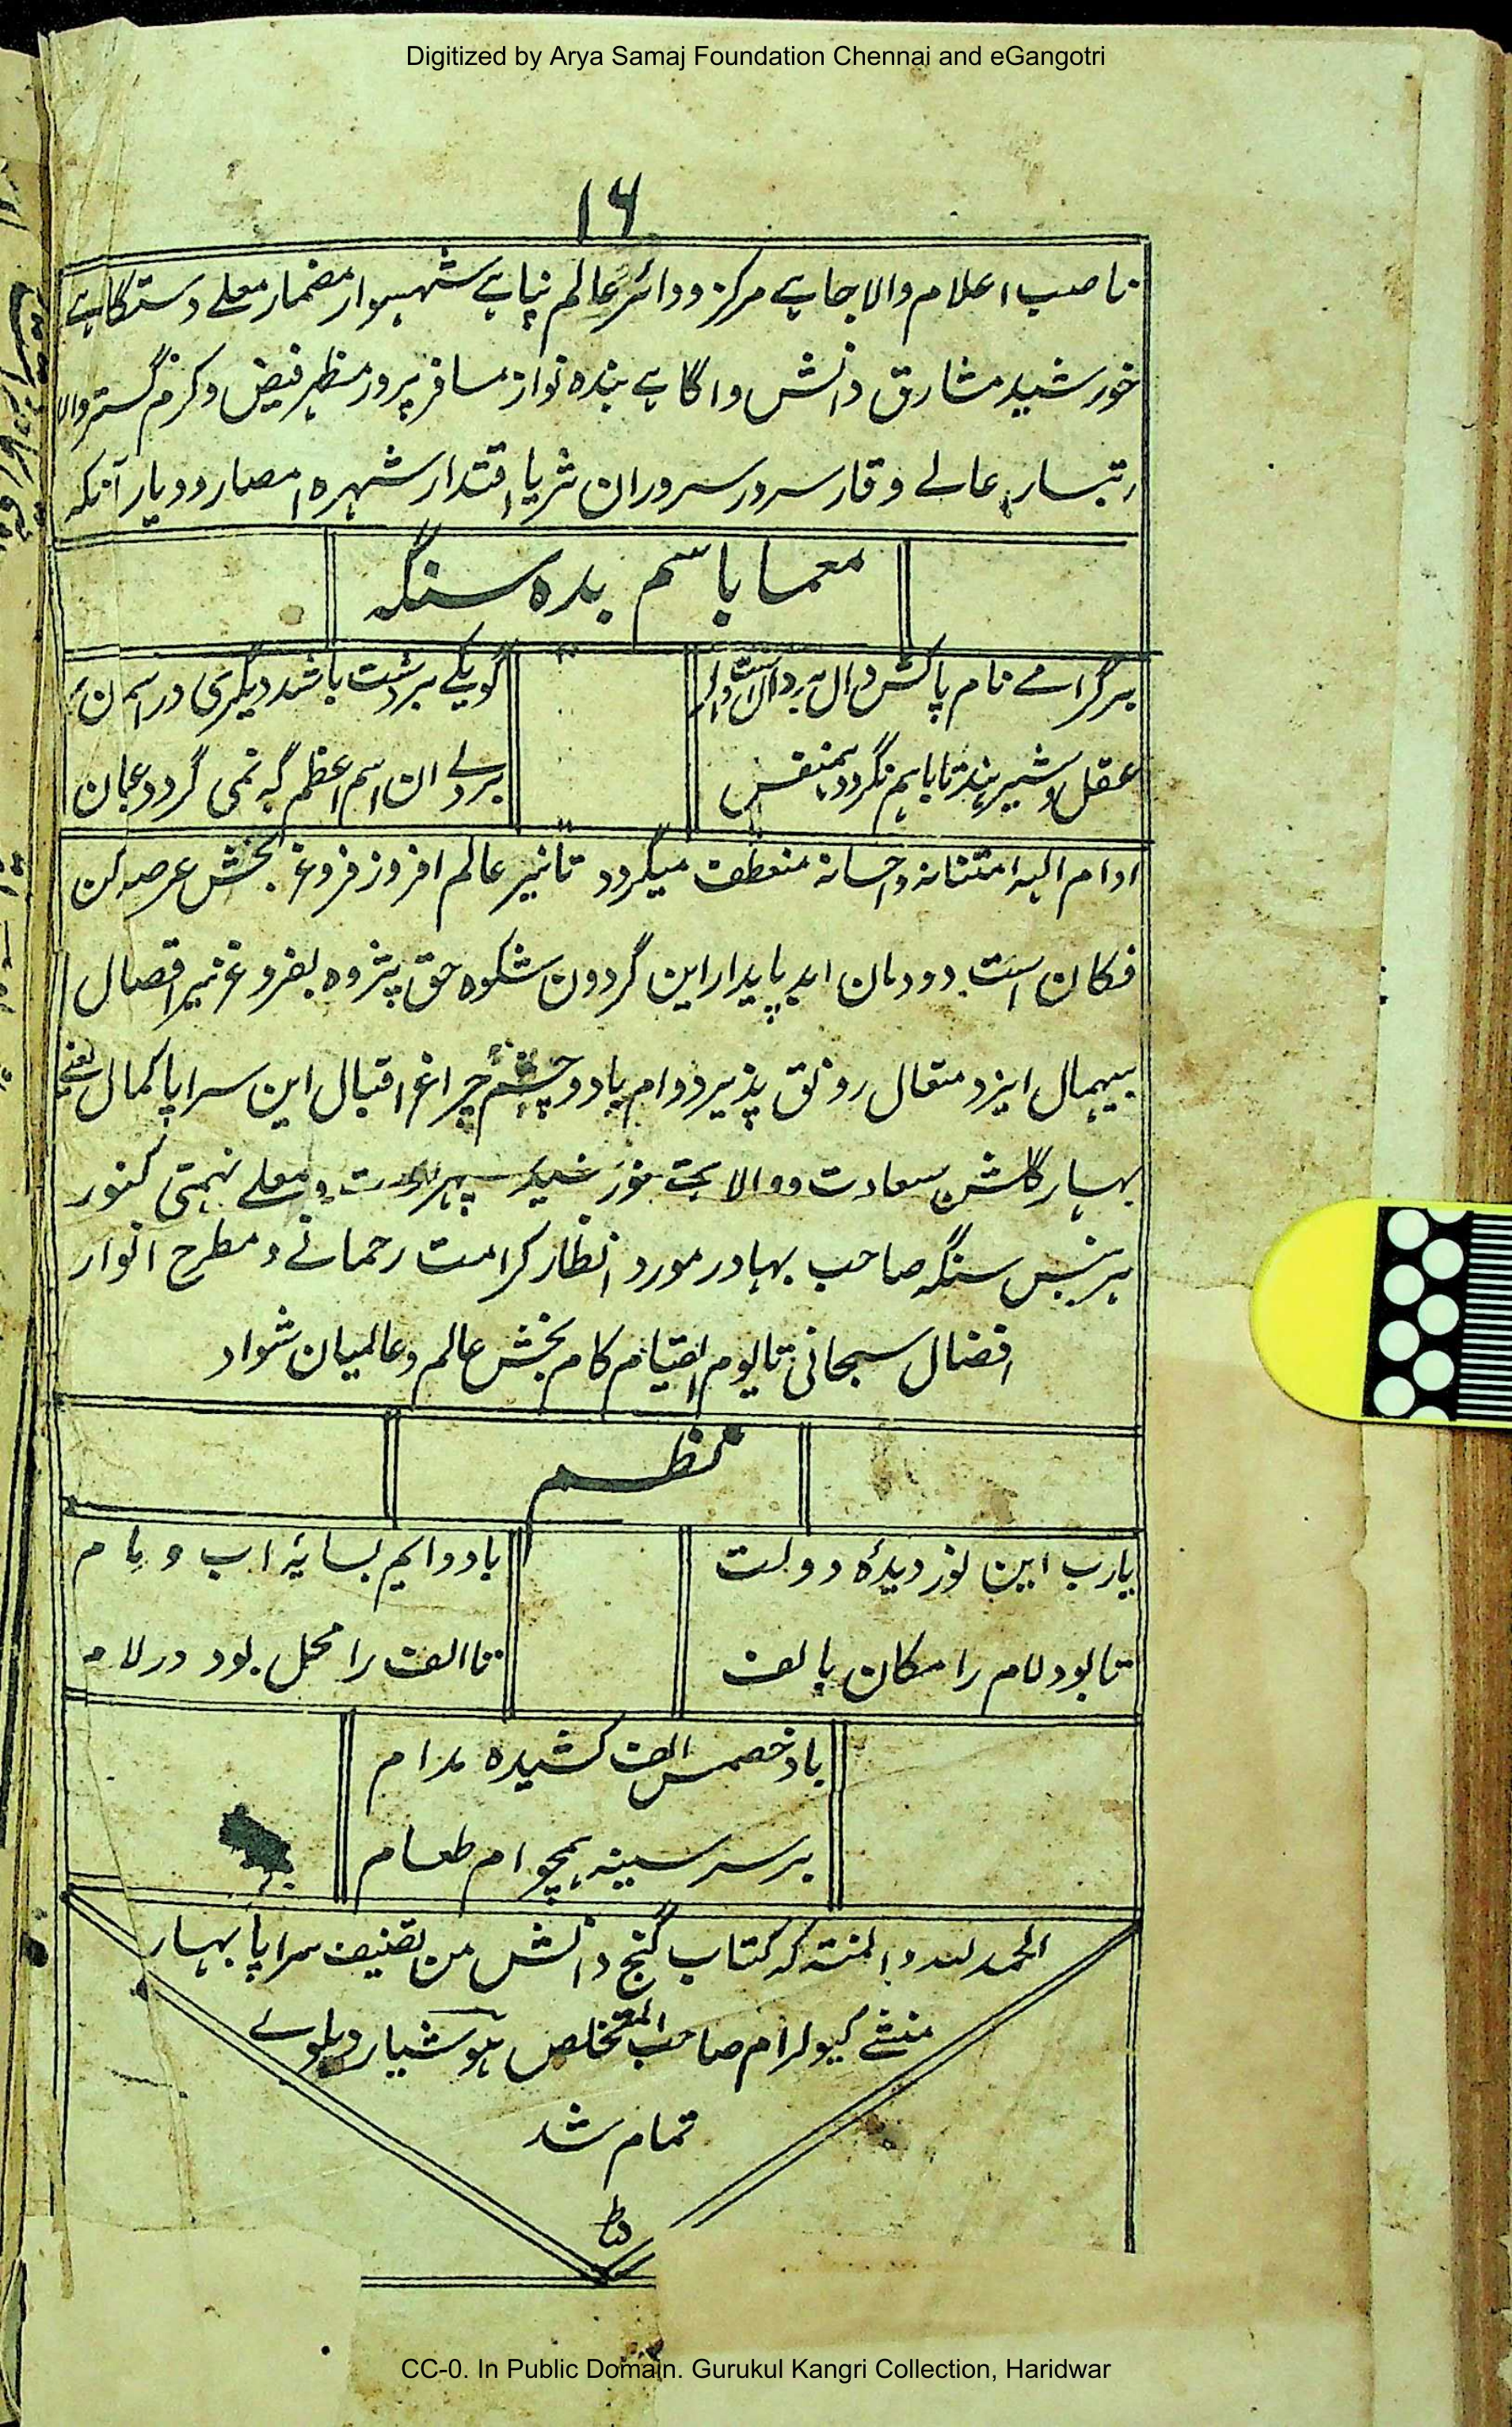 Digitized by Arya Samaj Foundation Chennai and eGangotri
۱۶
ناصب اعلام والا جاہے مرکز ودائر عالم پناہے شہسوار مضمار معلے دستگاہے
خورشید مشارق دانش واگاہے بندہ نواز مسافر پرور مظہر فیض وکرم گستر والا
رتبسار عالے وقار سرور سروران ثریا اقتدار شہرہ امصار ودیار آنکہ
معما باسم بدہ سنگہ
برگرامے نام پاکش دال بردال است دال
گویکے بردشت باشد دیگری در اسمان
عقل وشیر پند تا باہم نگردد ہمنفس
بردلے ان اسم اعظم گہ نمی گردد عیان
ادام الیہ امتنانہ واحسانہ منعطف میگردد تا نیر عالم افروز فروغ بخش عرصہ کن
فکان است دودمان ابد پایدار این گردون شکوہ حق پژوہ بفروغ نیر افصال
بیہمال ایزد متعال رونق پذیر دوام باد وچشم چراغ اقبال این سراپا کمال یعنے
بہار گلشن سعادت ووالا بختے خورشید سپہر ومعلے نہمتی کنور
ہربنس سنگہ صاحب بہادر مورد انظار کرامت رحمانے ومطرح انوار
افضال سبحانی تا یوم القیام کام بخش عالم وعالمیان شواد
نظم
یارب این نور دیدۂ دولت
باد دایم بسایۂ اب و مام
تا بود لام را مکان بالف
تا الف را محل بود در لام
باد خصمش الف کشیدہ مدام
بر سر سینہ ہمچو ام طعام
الحمد للہ والمنتہ کہ کتاب گنج دانش من تصنیف سراپا بہار
منشے کیولرام صاحب المتخلص ہوشیار دہلوے
تمام شد
CC-0. In Public Domain. Gurukul Kangri Collection, Haridwar